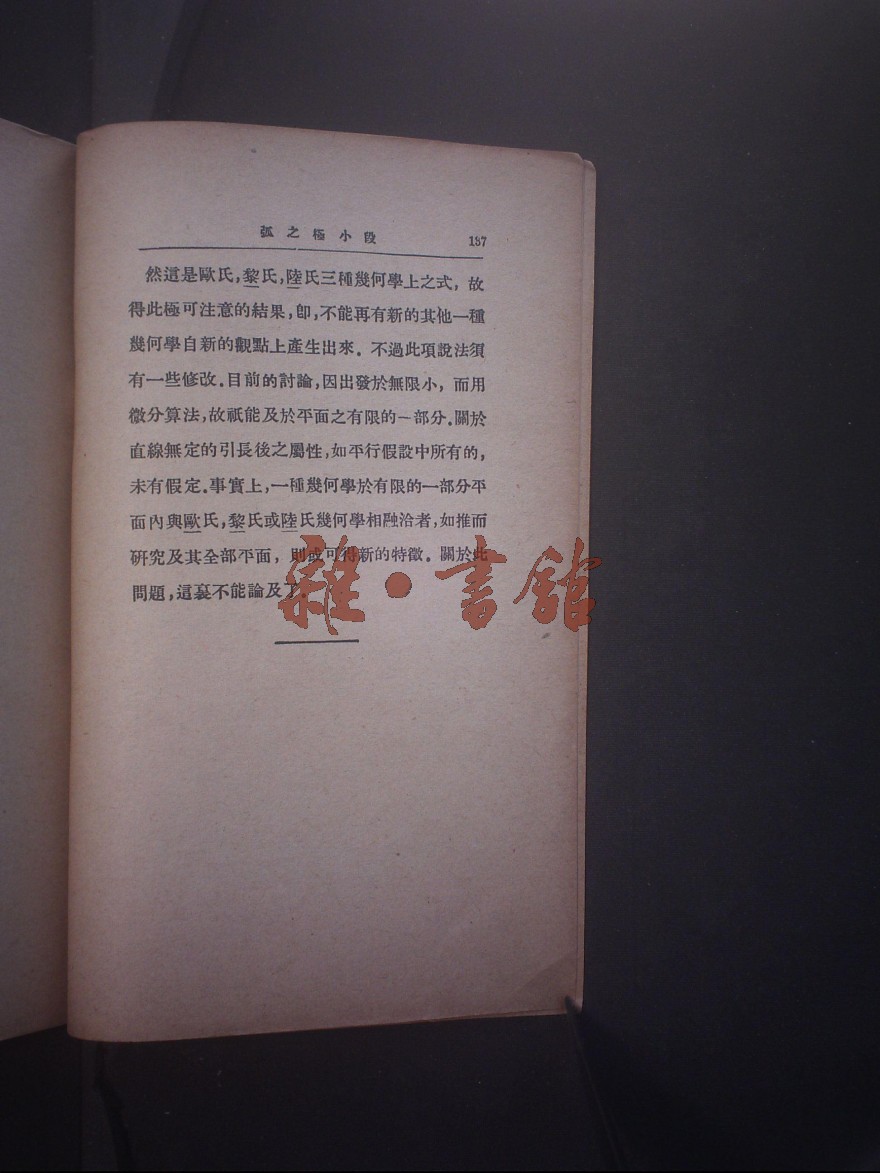 弧之極小段 187
然這是歐氏，黎氏，陸氏三種幾何學上之式，故
得此極可注意的結果，卽，不能再有新的其他一種
幾何學自新的觀點上產生出來．不過此項說法須
有一些修改．目前的討論，因出發於無限小，而用
微分算法，故祇能及於平面之有限的一部分．關於
直線無定的引長後之屬性，如平行假設中所有的，
未有假定．事實上，一種幾何學於有限的一部分平
面內與歐氏，黎氏或陸氏幾何學相融洽者，如推而
研究及其全部平面，則或可得新的特徵．關於此
問題，這裏不能論及了．
雜•書館